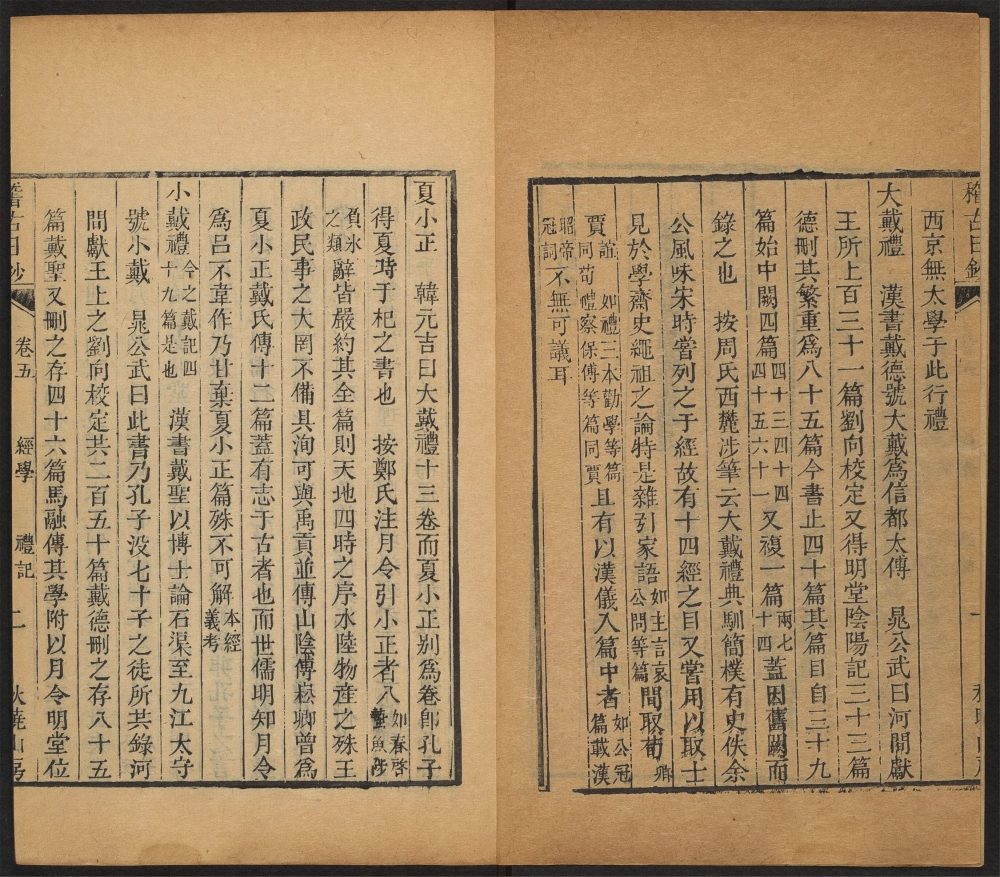 稽古日鈔
西京無太學于此行禮
大戴禮　漢書戴德號大戴爲信都太傅　晁公武曰河間獻
王所上百三十一篇劉向校定又得明堂陰陽記三十三篇
德刪其繁重爲八十五篇今書止四十篇其篇目自三十九
篇始中闕四篇四十三四十四四十五六十一又複一篇兩七十四蓋因舊闕而
錄之也　按周氏西麓涉筆云大戴禮典馴簡樸有史佚余
公風味宋時嘗列之于經故有十四經之目又嘗用以取士
見於學齋史繩祖之論特是雜引家語如主言哀公問等篇間取荀卿
賈誼如禮三本勸學等篇同荀禮察保傅等篇同賈且有以漢儀入篇中者如公冠篇載漢
昭帝冠詞不無可議耳
夏小正　韓元吉曰大戴禮十三卷而夏小正别爲卷郎孔子
得夏時于杞之書也　按鄭氏注月令引小正者八如春啓蟄魚陟
負冰之類辭皆嚴約其全篇則天地四時之序水陸物產之殊王
政民事之大罔不備具洵可與禹貢並傳山陰傅崧卿曾爲
夏小正戴氏傳十二篇蓋有志于古者也而世儒明知月令
爲呂不韋作乃甘棄夏小正篇殊不可解本經義考
小戴禮今之戴記四十九篇是也　漢書戴聖以博士論石渠至九江太守
號小戴　晁公武曰此書乃孔子没七十子之徒所共錄河
間獻王上之劉向校定共二百五十篇戴德刪之存八十五
篇戴聖又刪之存四十六篇馬融傳其學附以月令明堂位
稽古日鈔　卷五　經學　禮記　二　秋曉山房